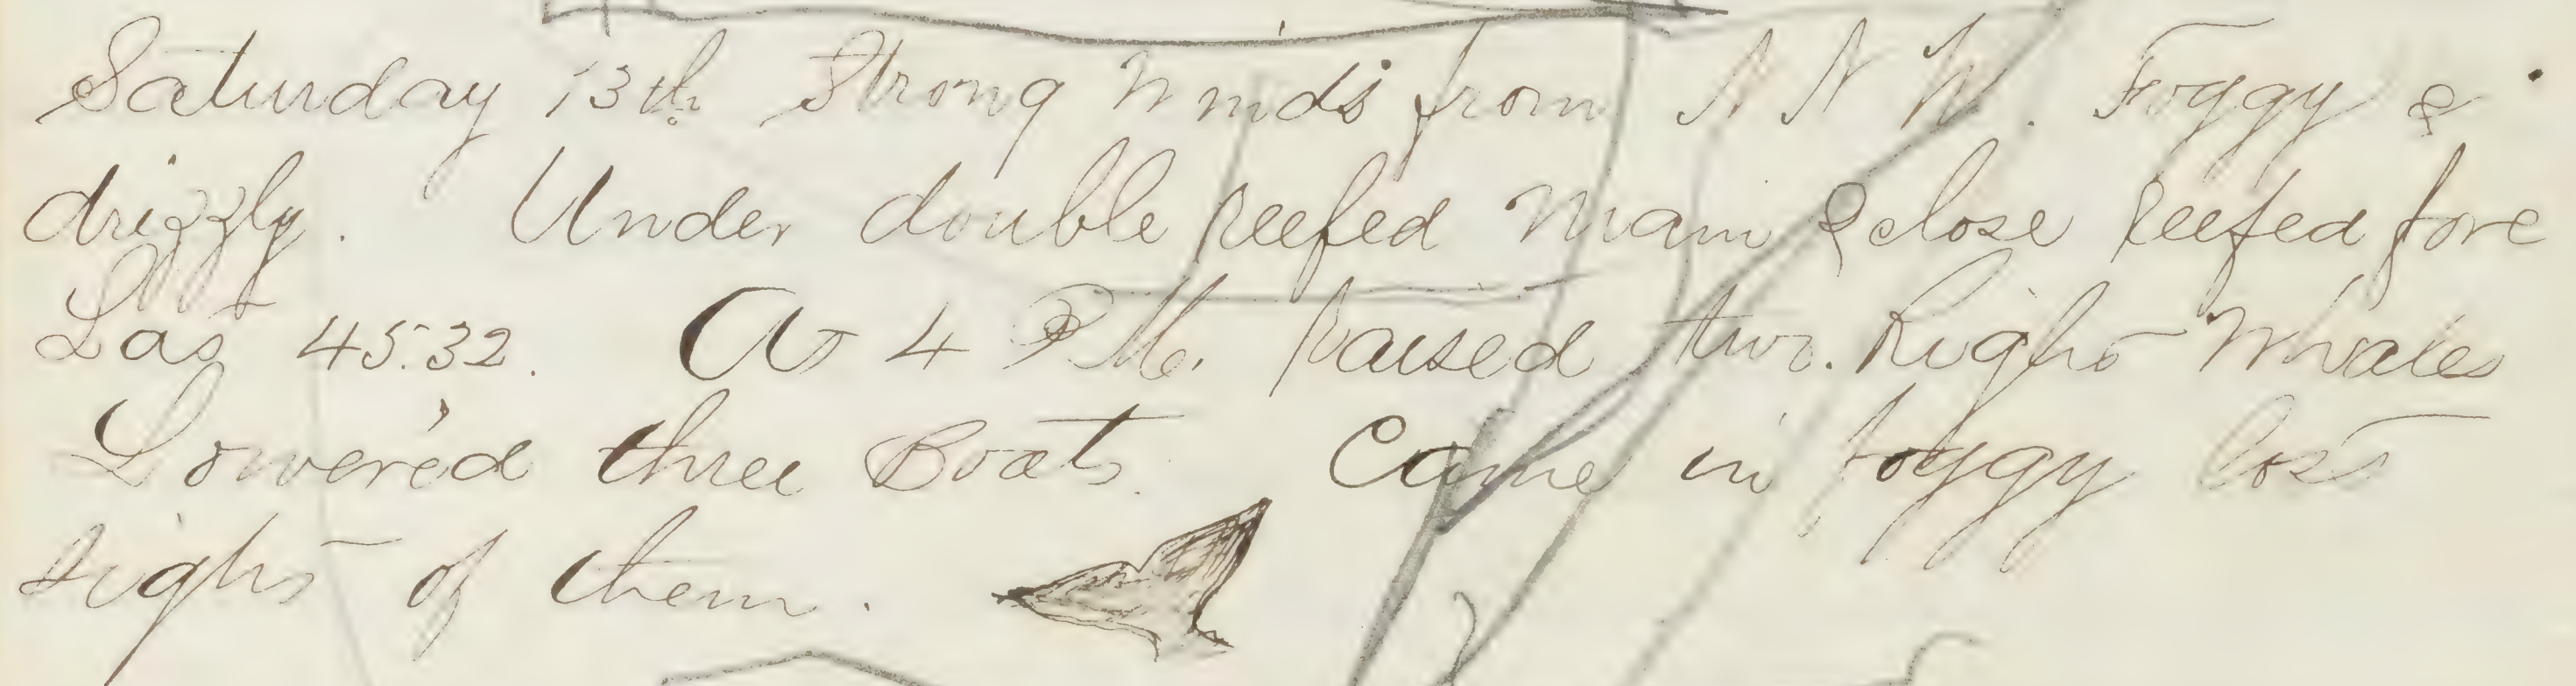 Saturday 13th Strong Winds from N N W. Foggy &
drizzly. Under double Reefed Main & close Reefed fore
Lat 45.32. At 4 P M. Raised two. Right Whales
Lowere'd three Boats. Came in foggy lost
sight of them.